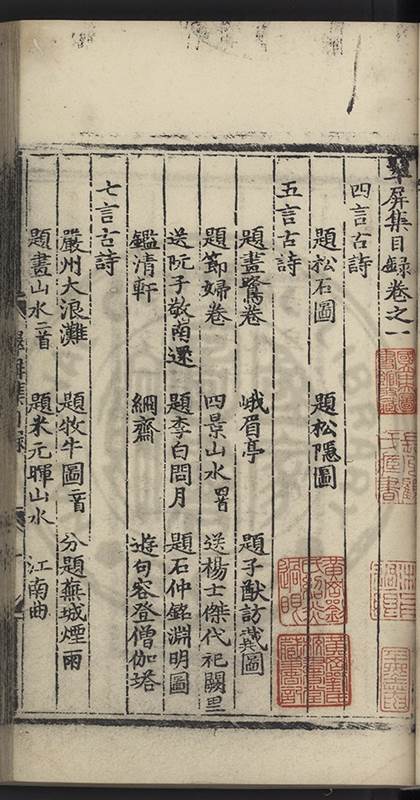 翠屏集目録卷之一
四言古詩
題松石圖 題松隱圖
五言古詩
題畫鷺卷 峨眉亭 題子猷訪戴圖
題節婦卷 四景山水四首 送楊士傑代祀闕里
送阮子敬南還 題李白問月 題石仲銘淵明圖
鑑清軒 絅齋 遊句容登僧伽塔
七言古詩
嚴州大浪灘 題牧牛圖二首 分題蕪城煙雨
題畫山水二首 題米元暉山水 江南曲